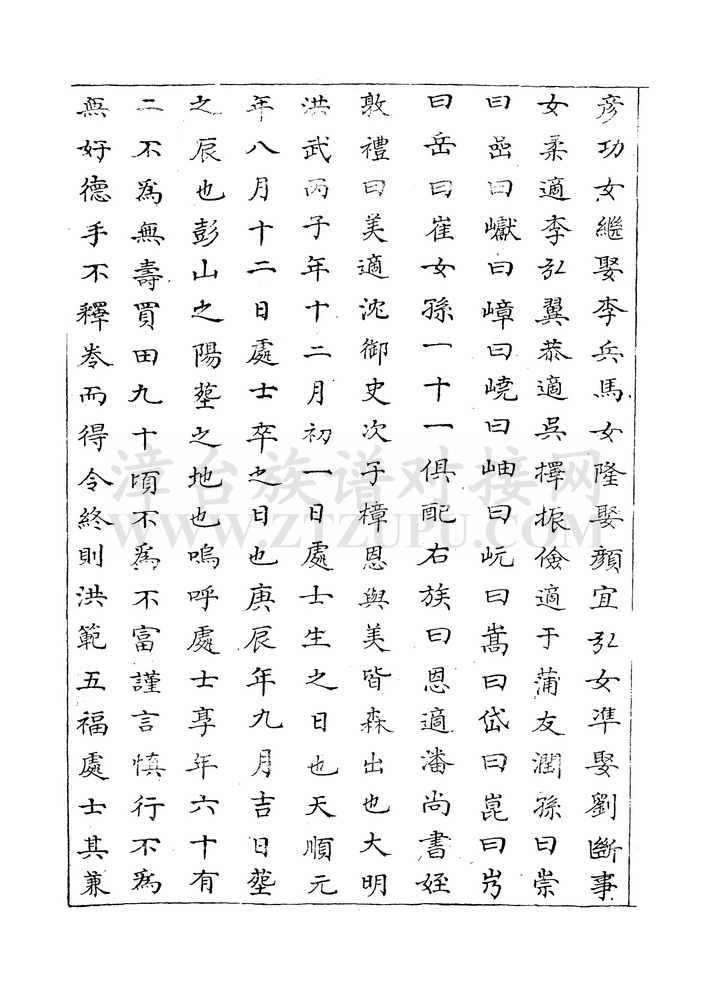 彦功女繼娶李兵馬女隆娶顔宜弘女準娶劉斷事
女柔適李弘翼恭適吳擇振儉適于蒲友潤孫曰崇
曰嵒曰巘曰嶂曰嶢曰岫曰岏曰嵩曰岱曰崑曰岃
曰岳曰崔女孫一十一俱配右族曰恩適潘尚書姪
敦禮曰美適沈御史次子樟恩與美皆森出也大明
洪武丙子年十二月初一日處士生之日也天順元
年八月十二日處士卒之日也庚辰年九月吉日塟
之辰也彭山之陽塟之地也嗚呼處士享年六十有
二不為無壽買田九十頃不為不富謹言慎行不為
無好德手不釋卷而得令終則洪範五福處士其兼
漳台族谱对接网
WWW.ZTZUPU.COM